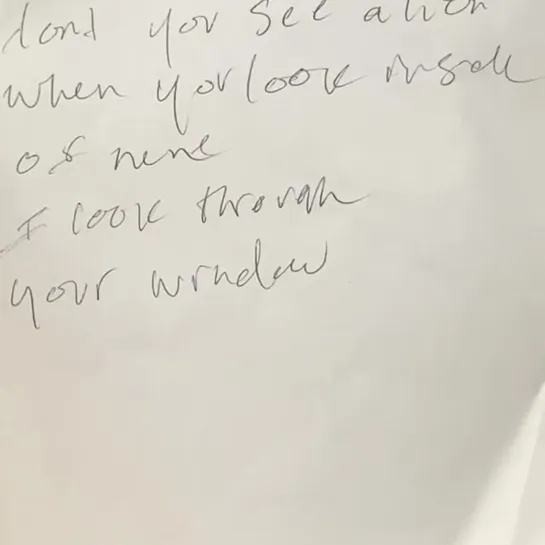 dont you see a
when you look inside
of mine
I look through
your window